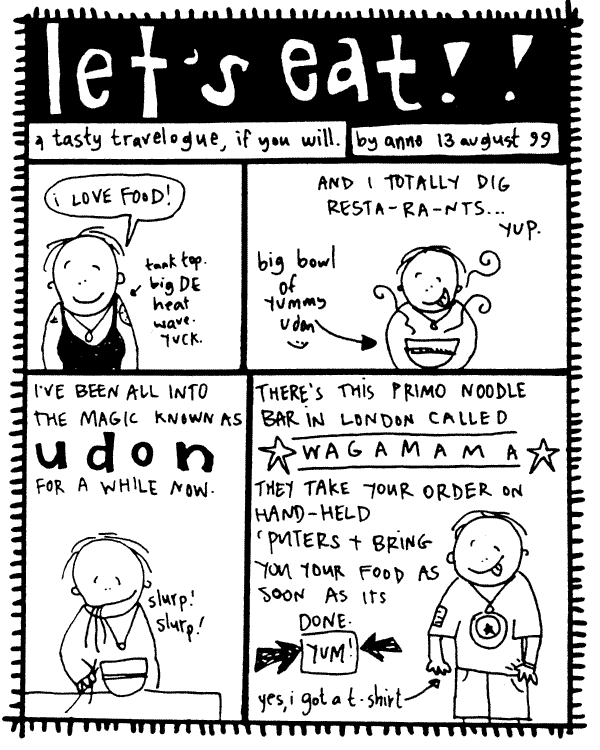 let's eat!!
a tasty travelogue, if you will.
by anno 13 august 99
i LOVE FOOD!
tank top.
big DE
heat
wave.
YUCK.
AND I TOTALLY DIG
RESTA-RA-NTS...
YUP.
big bowl
of
yummy
udon
I'VE BEEN ALL INTO
THE MAGIC KNOWN AS
udon
FOR A WHILE NOW.
slurp!
slurp!
THERE'S THIS PRIMO NOODLE
BAR IN LONDON CALLED
WAGAMAMA
THEY TAKE YOUR ORDER ON
HAND-HELD
'PUTERS + BRING
YOU YOUR FOOD AS
SOON AS ITS
DONE.
YUM!
yes, i got a t-shirt